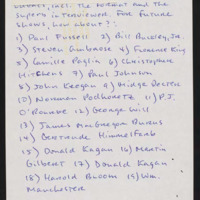 superb interviewer. For future
shows, how about?:
1) Paul Russell 2) Bill Buckley, Jr.
3) Steven Ambrose 4) Florence King
5) Camille Paglia 6) Christopher
Hitchens 7) Paul Johnson
8) John Keegan 9) Midge Decter
10) Norman Podhoretz 11) P.J.
O'Rourke 12) George Will
13) James MacGregor Burns
14) Gertrude Himmelfarb
15) Donald Kagan 16) Martin
Gilbert 17) Donald Kagan
18) Harold Bloom 19) Wm.
Manchester